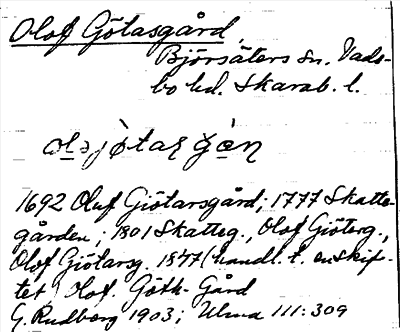 Olof Götasgård,
Björsäters sn. Vads-
bo hd. Skarab. l.
1692 Oluf Giötarsgård; 1777 Skatte-
gården; 1801 Skatteg., Olof Giöterg.,
Olof Giötarsg 1847 (handl. t. enskif-
tet) Olof. Göth. Gård
G. Rudberg 1903; Ulma 111:309